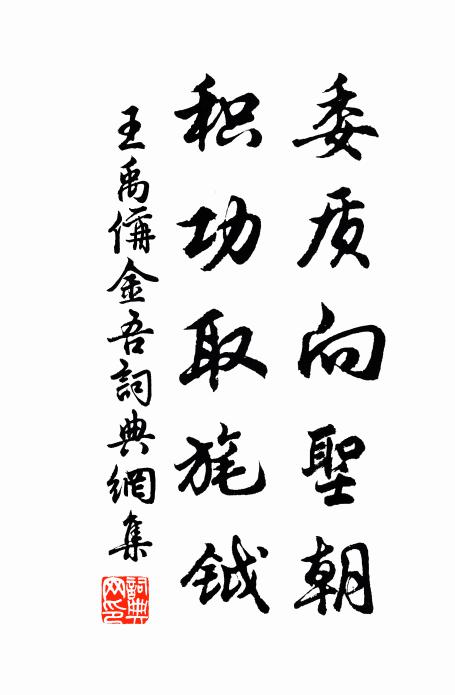 委质向聖朝
积功取旄钺
王禹偁金吾詞典網集
詞典网印